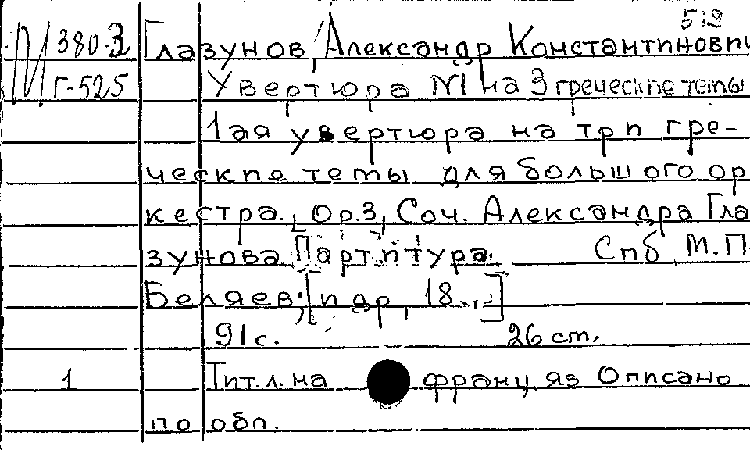 519
М 380-3 Глазунов, Александр Константинович
Г-525 Увертюра №1 на 3 греческие темы
1ая увертюра на три гре-
ческие темы для большого ор
кестра., [op.3, Соч. Александра Гла
зунова. Партитура. Спб, М.П.
Беляев, [пар, 18..]
91с. 26 cm.
1 Тит.л. на франц яз Описано
по обл.